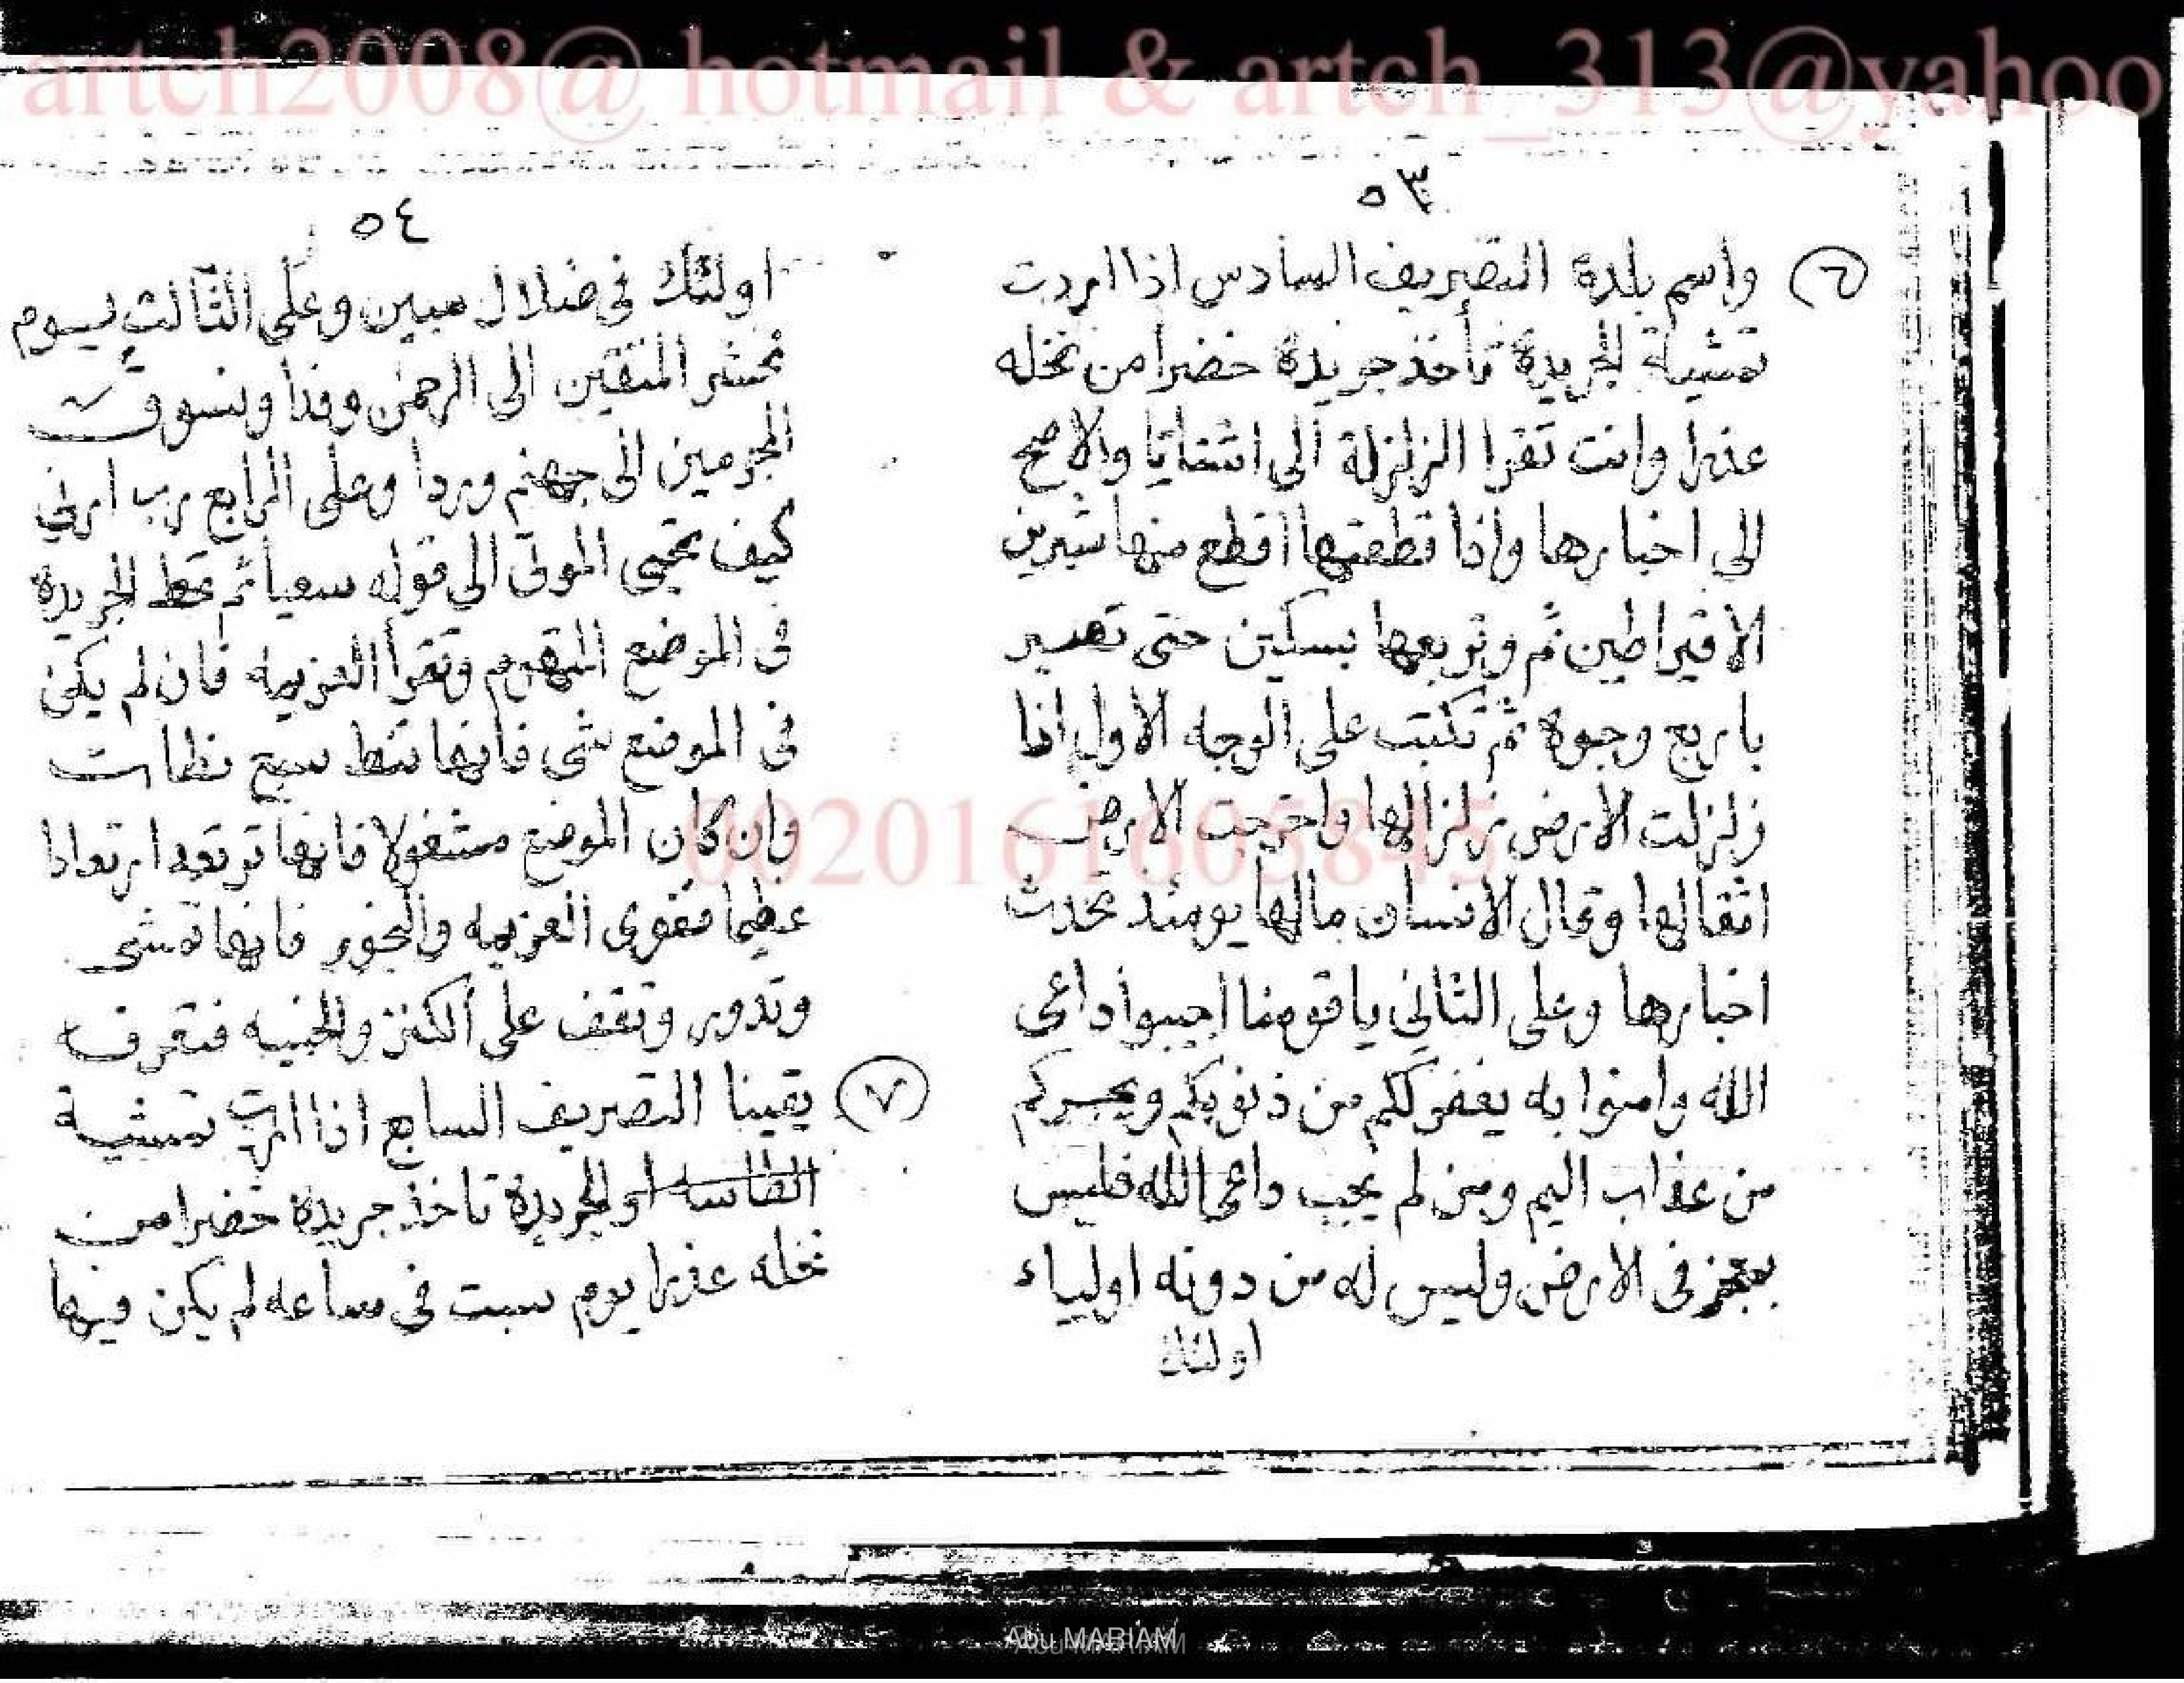 artch2008@ hotmail & artch_313@yahoo
٥٣
٦ واسم بلدة التصريف السادس اذا اردت
تمشية الجريدة تأخذ جريدة خضرا من نخله
عذرا وانت تقرا الزلزلة الى اشتاتا والاصح
الى اخبارها واذا قطعتها اقطع منها شبرين
الا قيراطين ثم وتربعها بسكين حتى تصير
باربع وجوة ثم تكتب على الوجه الاول اذا
زلزلت الارض زلزالها واخرجت الارض
اثقالها وقال الانسان مالها يومئذ تحدث
اخبارها وعلى الثانى ياقومنا اجيبوا داعى
الله وامنوا به يغفر لكم من ذنوبكم ويجركم
من عذاب اليم ومن لم يجب داعى الله فليس
بمعجز فى الارض وليس له من دونه اولياء
اولئك
٥٤
اولئك فى ضلال مبين وعلى الثالث يوم
نحشر المتقين الى الرحمن وفدا ونسوق
المجرمين الى جهنم وردا وعلى الرابع رب ارنى
كيف تحيى الموتى الى قوله سعيا ثم تحط الجريدة
فى الموضع المتهوم وتقرا العزيمه فان لم يكن
فى الموضع شى فانها تنط سبع نطات
وان كان الموضع مشغولا فانها ترتعد ارتعادا
عظيما فقوى العزيمه والبخور فانها تمشى
وتدور وتقف على الكنز والخبيه فتعرف
٧ يقينا التصريف السابع اذا اردت تمشية
الطاسه او الجريدة تاخذ جريدة خضرا من
نخله عذرا يوم سبت فى ساعه لم يكن فيها
00201616005845
Abu MARIAM